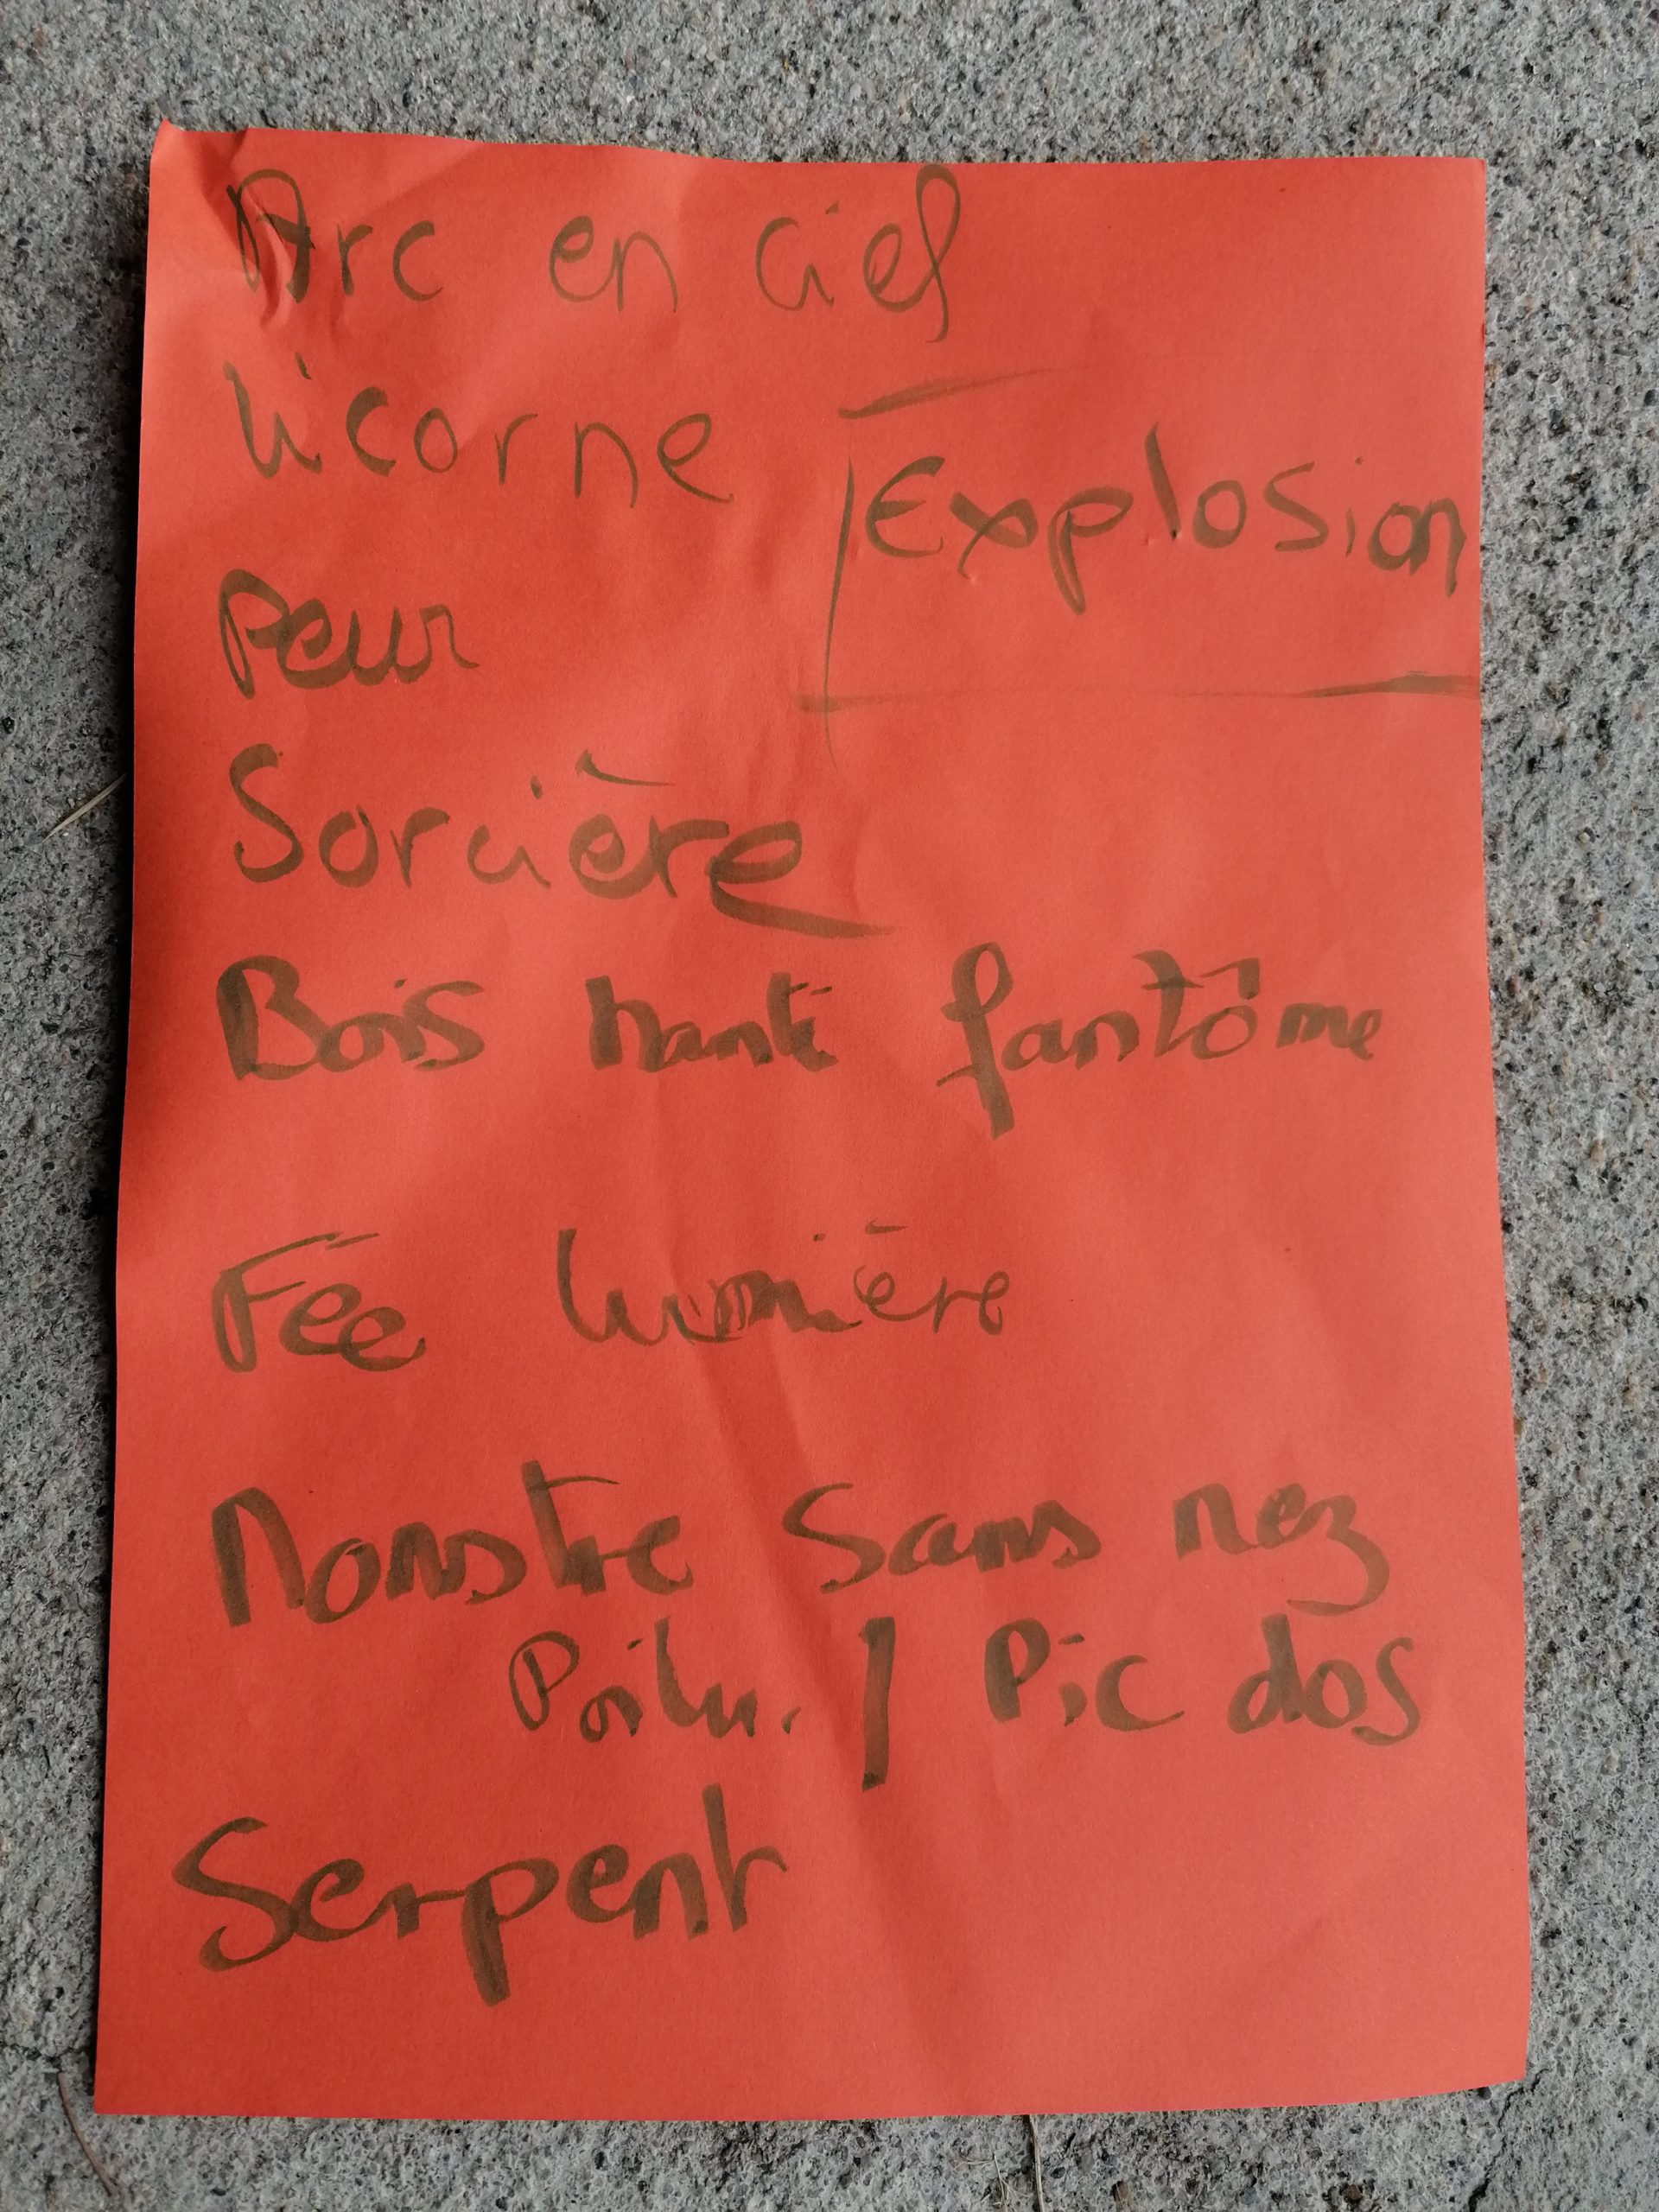 Arc en ciel
licorne
Explosion
Peur
Sorcière
Bois hanté fantôme
Fée lumière
Monstre sans nez
Poilu. / Pic dos
Serpent